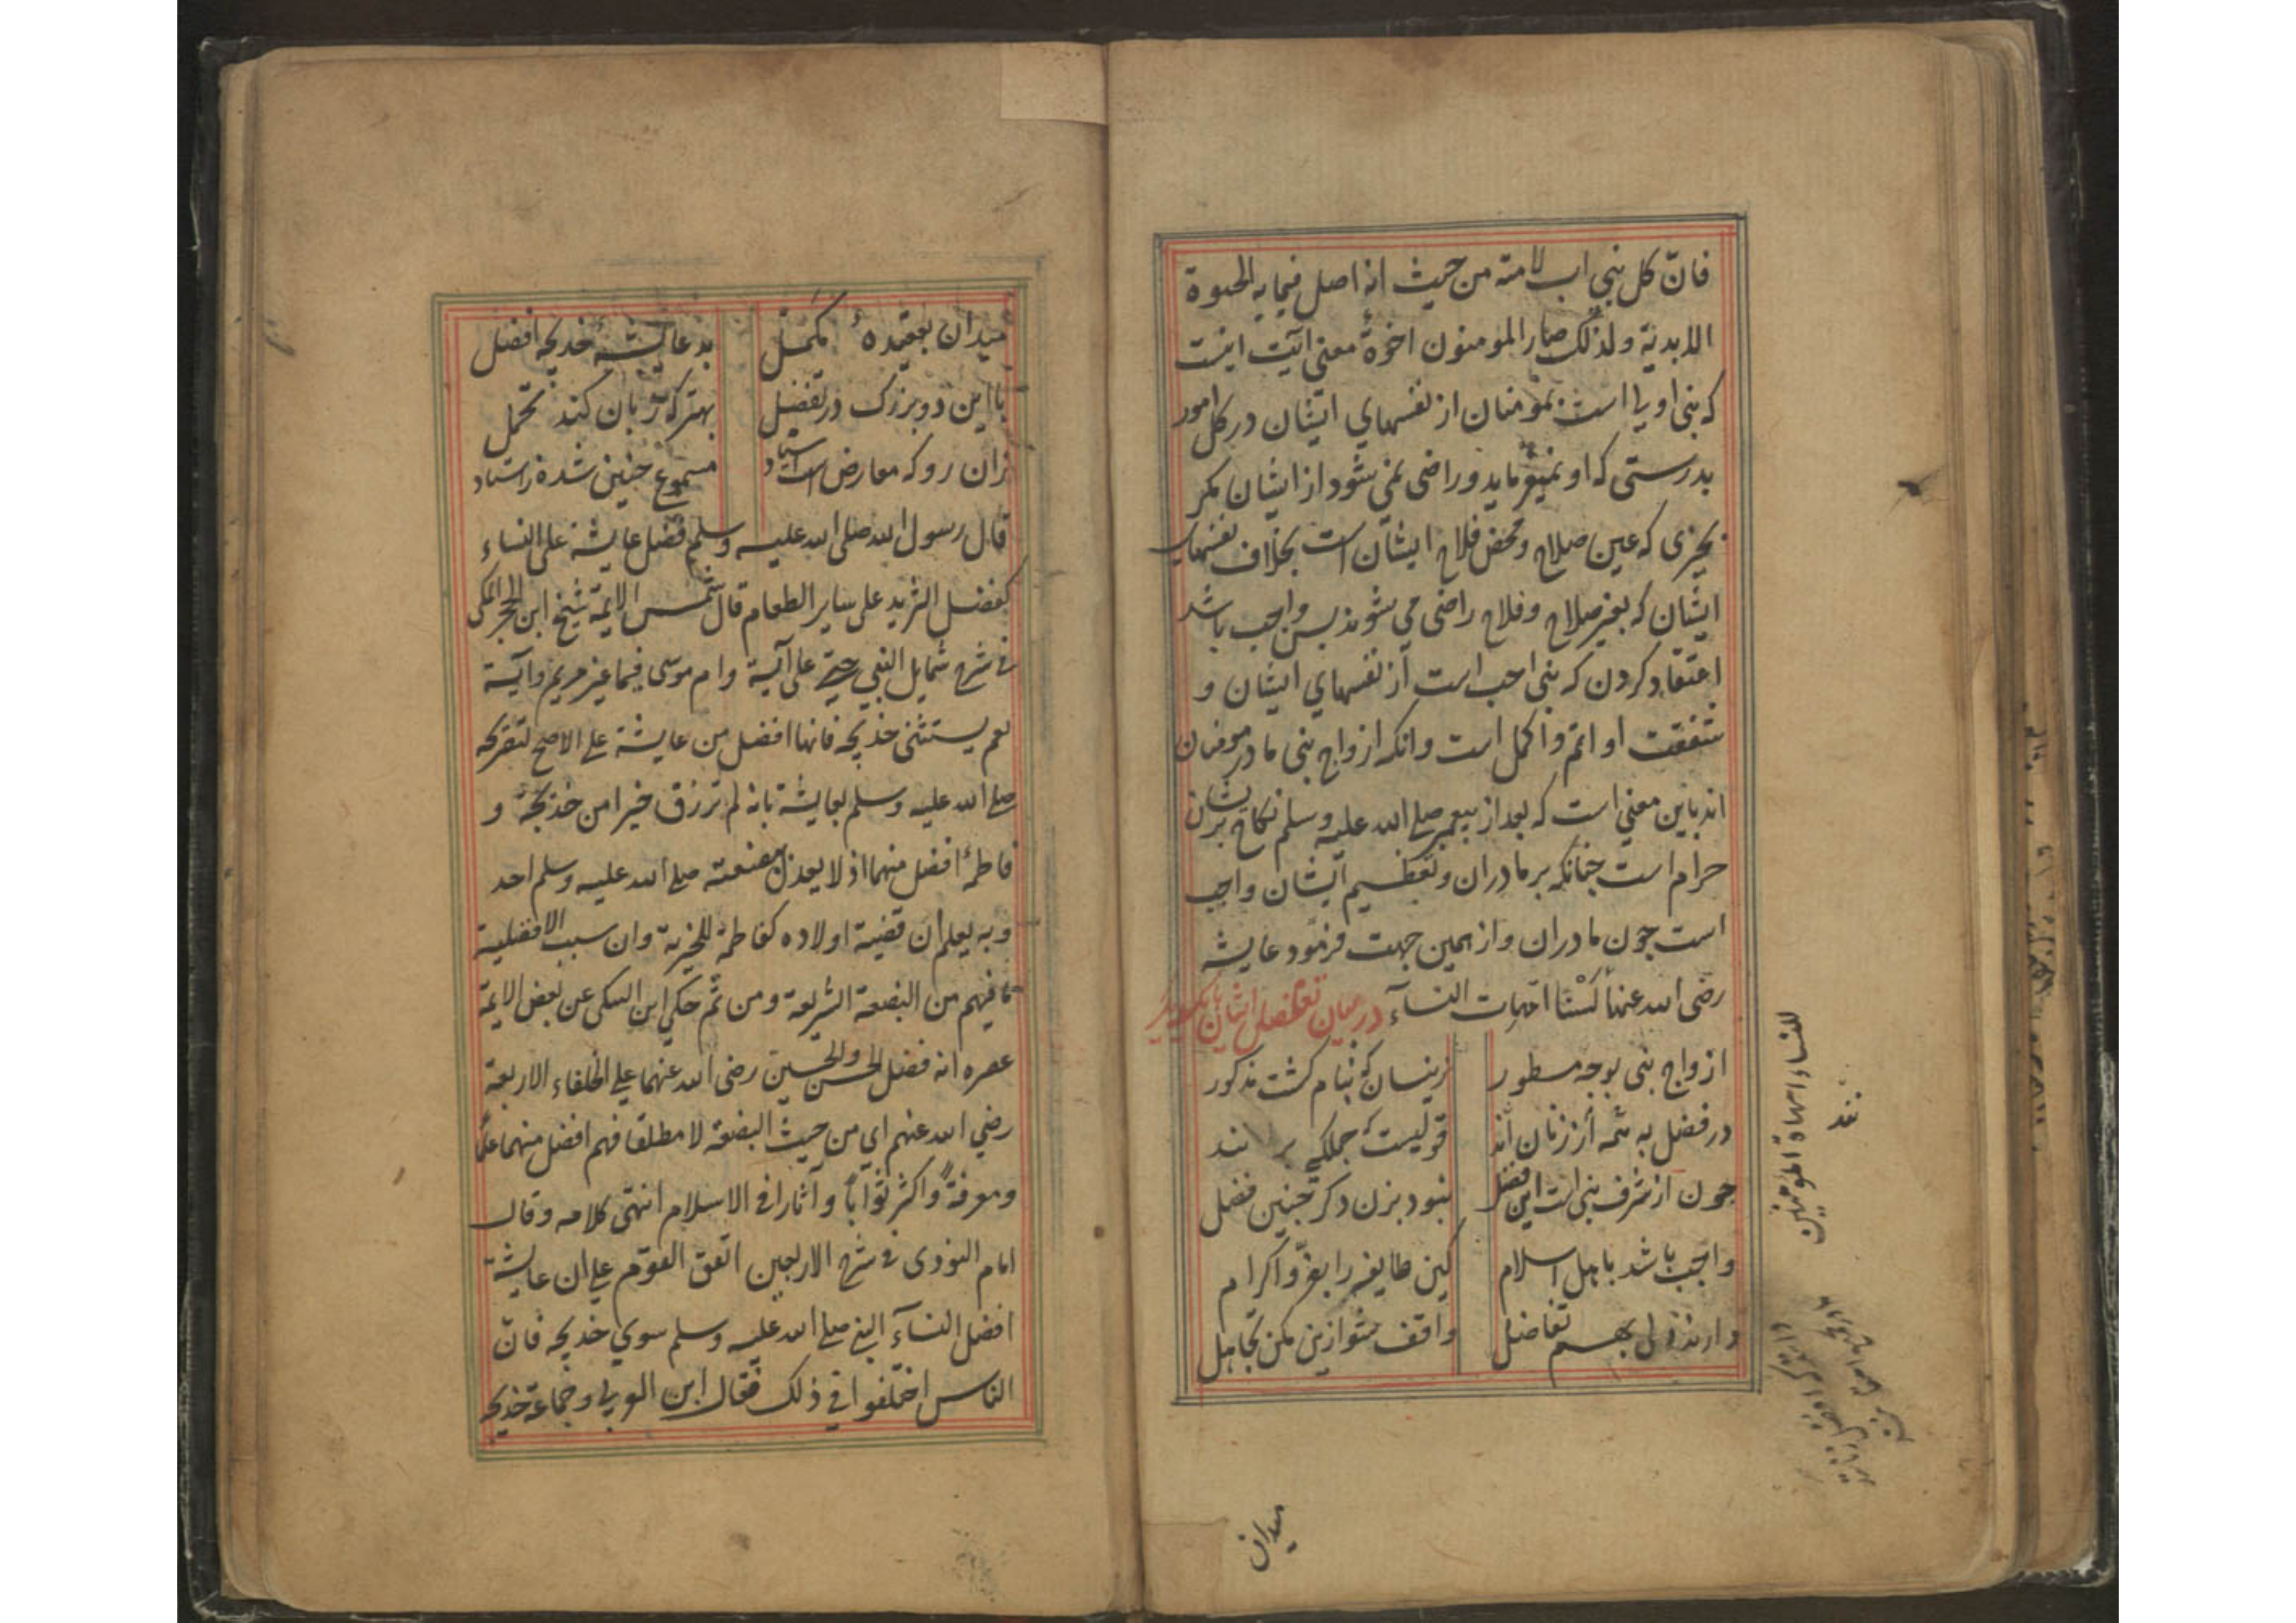 فانّ كل نبي اب لامته من حيث انه اصل فيما به الحيوة
الابدية ولذلك صار المومنون اخوة معنی آیت اینست
که نبی اولی است بمؤمنان از نفسهای ایشان در کل امور
بدرستی که او نمیفرماید و راضی نمی شود از ایشان مگر
بچیزی که عین صلاح و محض فلاح ایشان است بخلاف نفسهای
ایشان که بغیر صلاح و فلاح راضی می شوند پس واجب باشد
اعتقاد کردن که نبی احب است از نفسهای ایشان و
شفقت او اتم و اکمل است و انکه ازواج نبی مادر مومنان
اند باین معنی است که بعد از پیغمبر صلی الله علیه وسلم نکاح بر ایشان
حرام است چنانکه بر مادران و تعظیم ایشان واجب
است چون مادران و از همین جهت فرمود عایشه
رضی الله عنها لَسْنَا امّهات النسآء در بیان تفضیل ایشان بایکدیگر
ازواج نبی بوجه مسطور زینسان که بنام گشت مذکور
در فضل به همه از زنان اند قولیست که جملگی بر انند
چون از شرف نبی است این فضل نبود بزن دکر چنین فضل
واجب باشد باهل اسلام کین طایفه را بعزّ و اکرام
دارند ولی بهم تفاضل واقف شو ازین مکن تجاهل
للنساء امهاة المؤمنین
میدان
میدان بعقیدهٔ مکمل بد عایشه خدیجه افضل
با این دو بزرک در تفضیل بهتر که زبان کند تحمل
زان رو که معارض است اسناد مسموع چنین شده ز استاد
قال رسول الله صلی الله علیه وسلم فضل عایشة علی النساء
كفضل الثريد على ساير الطعام قال شمس الایمة شیخ ابن الحجر المکی
فی شرح شمایل النبی حتی علی آسیة وام موسی فیما غیر مریم وآسیة
نعم یستثنی خدیجه فانها افضل من عایشة علی الاصح لتصریحه
صلی الله علیه وسلم لعایشة بانه لم ترزق خیرا من خدیجة و
فاطمة افضل منهما اذ لا یعدل بضعته صلی الله علیه وسلم احد
وبه یعلم ان قضیة اولاده کفاطمة للخبریة وان سبب الافضلیة
ما فیهم من البضعة الشریعة ومن ثم حکی ابن السبکی عن بعض الایمة
عصره انه فضل الحسن والحسین رضی الله عنهما علی الخلفاء الاربعة
رضی الله عنهم ای من حیث البضعة لا مطلقا فهم افضل منهما علمًا
ومعرفةً واکثر ثوابًا وآثارا فی الاسلام انتهی کلامه وقال
امام النووی فی شرح الاربعین اتفق القوم علی ان عایشة
افضل النسآء النبی صلی الله علیه وسلم سوی خدیجه فانّ
الناس اختلفوا فی ذلك فقال ابن الوردی وجماعة خدیجه